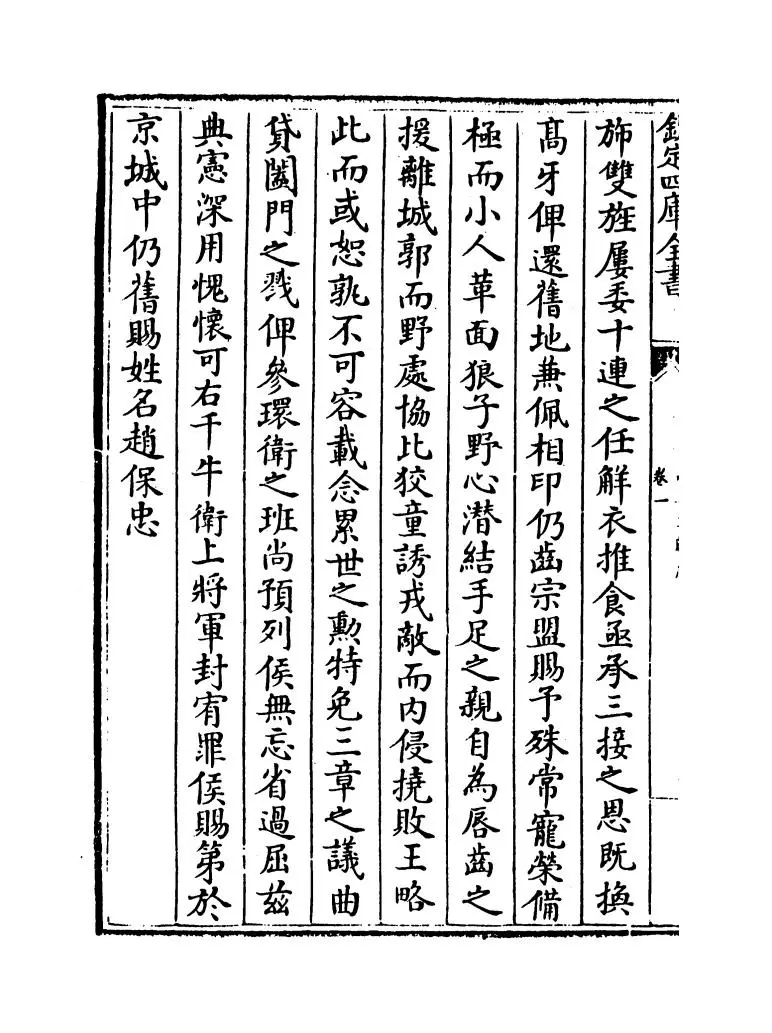 欽定四庫全書
卷一
斾雙旌屢委十連之任解衣推食亟承三接之恩既換
髙牙俾還舊地兼佩相印仍齒宗盟賜予殊常寵榮備
極而小人革面狼子野心潜結手足之親自為唇齒之
援離城郭而野處協比狡童誘戎敵而内侵撓敗王略
此而或恕孰不可容載念累世之勲特免三章之議曲
貸闔門之戮俾參環衛之班尚預列侯無忘省過屈兹
典憲深用愧懷可右千牛衛上將軍封宥罪侯賜第於
京城中仍舊賜姓名趙保忠